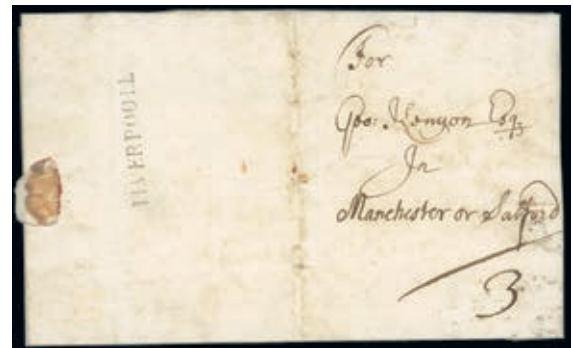 LIVERPOOLL
For
Geo: Kenyon Esq
In
Manchester or Salford
3